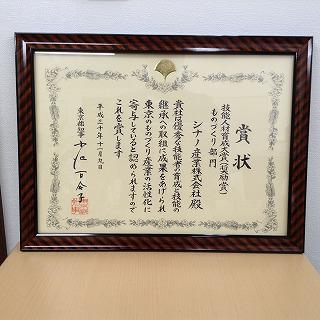 賞状
技能人材育成大賞(奨励賞)
ものづくり部門
シナノ産業株式会社殿
貴社は優秀な技能者の育成と技能の
継承への取組に成果をあげられ
東京のものづくり産業の活性化に
寄与していると認められますので
これを賞します
平成三十年十一月九日
東京都知事 小池百合子